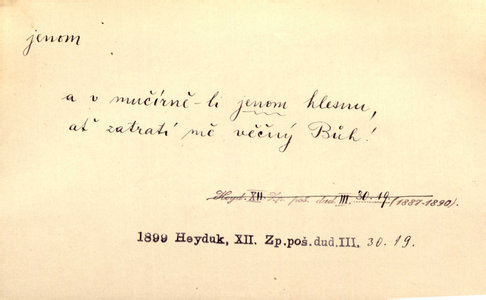 jenom
a v mučírně-li jenom hlesnu,
ať zatratí mě věčný Bůh!
Heyd. XII. Zp. poš. dud. III. 30. 19. (1887-1890).
1899 Heyduk, XII. Zp.poš.dud.III. 30. 19.